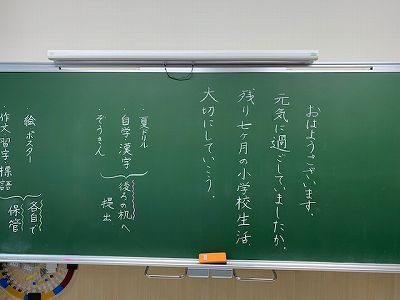 おはようございます。
元気に過ごしていましたか。
残り七ヶ月の小学校生活
大切にしていこう。
・夏ドリル
・自学漢字
・ぞうきん
後ろの机へ
提出
・絵 ポスター
・作文 習字・標語
各自で
保管